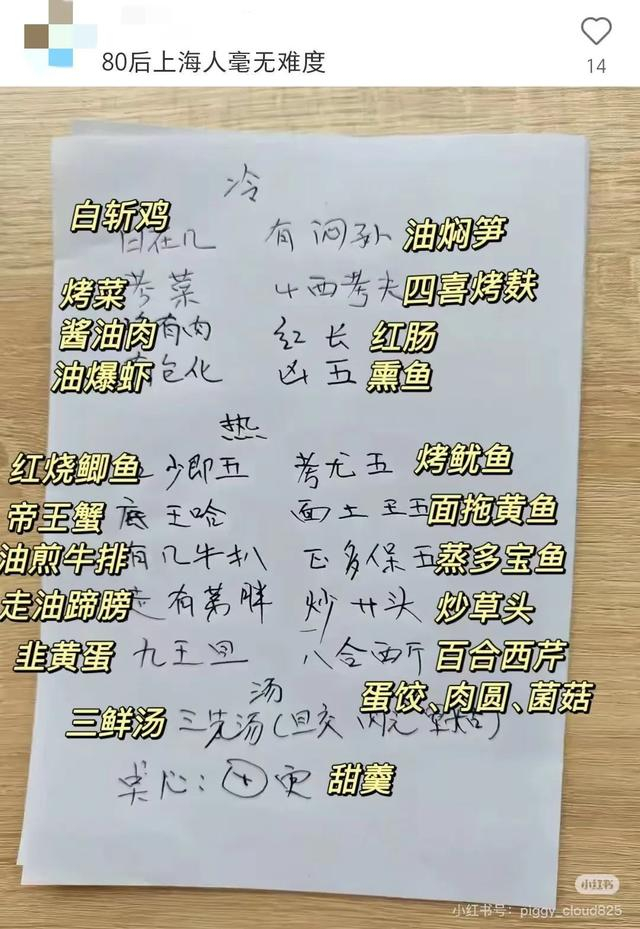 80后上海人毫无难度
14
冷
白斩鸡 白在几 有闷孙 油焖笋
烤菜 考菜 4西考夫 四喜烤麸
酱油肉 有肉 红长 红肠
油爆虾 包化 凶五 熏鱼
热
红烧鲫鱼 少即五 考尤五 烤鱿鱼
帝王蟹 底王哈 面土王五 面拖黄鱼
油煎牛排 有几牛扒 正多保五 蒸多宝鱼
走油蹄膀 走有弟胖 炒廾头 炒草头
韭黄蛋 九王旦 八合西斤 百合西芹
汤
蛋饺、肉圆、菌菇
三鲜汤 三先汤(旦交 肉元
心: 甜羹
小红书
小红书号: piggy_cloud825